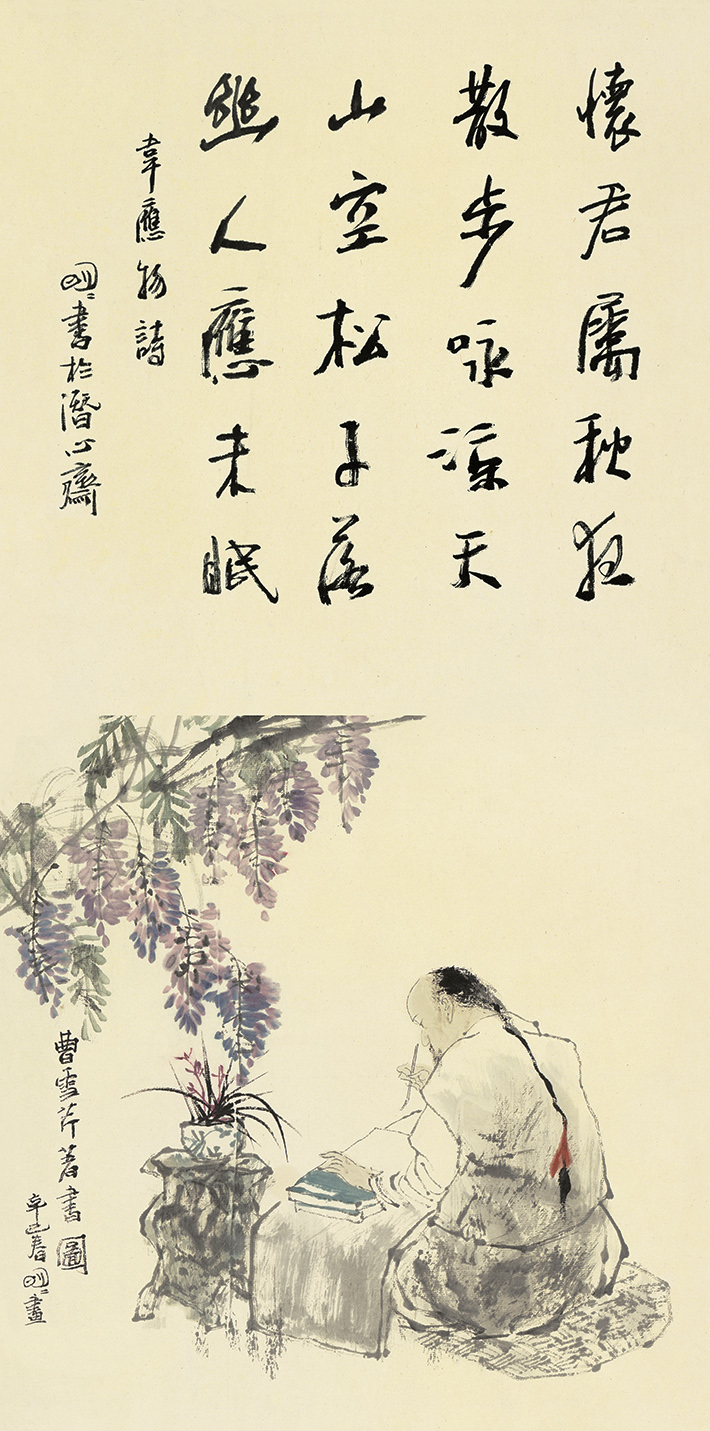 懷君屬秋夜
散步咏涼天
山空松子落
幽人應未眠
韋應物詩
明〻書於潛心齋
曹雪芹著書圖
辛巳春明〻畫